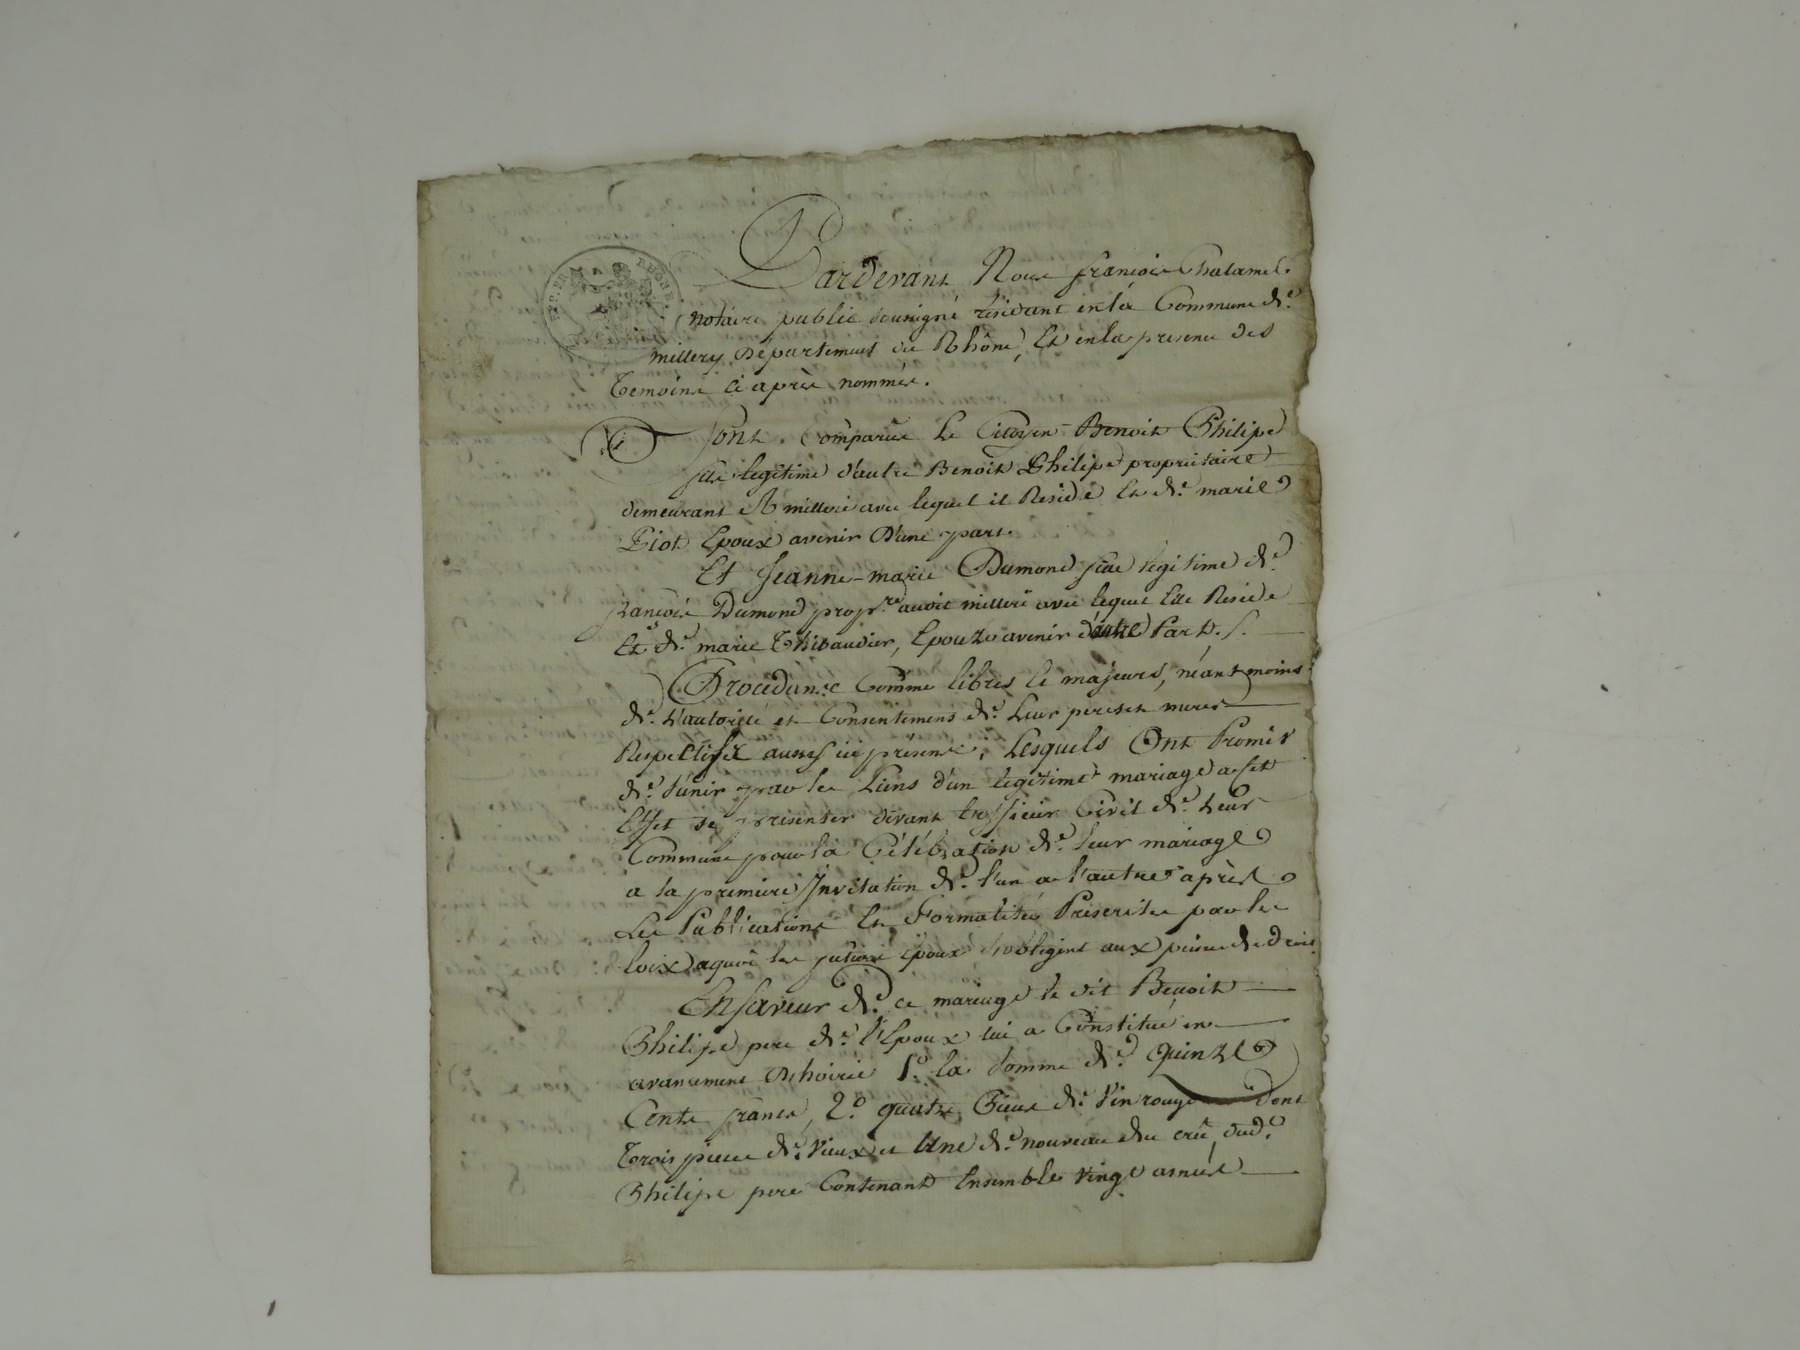 Pardevant Nous françois Chatamel
notaire public soussigné résidant en la Commune de
millery Département du Rhône, Et en la presence des
Temoins ci après nommés.
Sont Comparus Le Citoyen Benoit Philipe
fils legitime d'autre Benoit Philipe propriétaire
demeurant A milleri avec lequel il Reside Et de marie
Piot Epoux avenir D'une part.
Et Jeanne-marie Dumond fille legitime de
françois Dumond propre. audit milleri avec lequel Elle Reside
Et de marie Thibaudier, Epouze avenir d'autre Part.
Procédants Comme libres et majeurs, néantmoins
de L'autorité et Consentement de Leur peres et meres
Respectifs aussi ici présents, Lesquels Ont Promis
de S'unir par les Liens d'un legitime mariage a cet
Effet se présenter devant l'officier Civil de Leur
Commune pour la Célébration de leur mariage
a la premiere Invitation de l'un a l'autre après
Les Publications Et Formalités Prescrites par les
loix aquoi les futurs époux s'obligent aux peines de Droit
En faveur de ce mariage le dit Benoit
Philipe pere de l'Epoux lui a Constitué en
avancement D'hoirie 1.° la Somme de Quinze
Cents francs, 2.° quatre Pieces de Vin rouge dont
Trois pieces de Vieux et Une de nouveau du crû dud.
Philipe pere Contenant Ensemble Vingt asnées